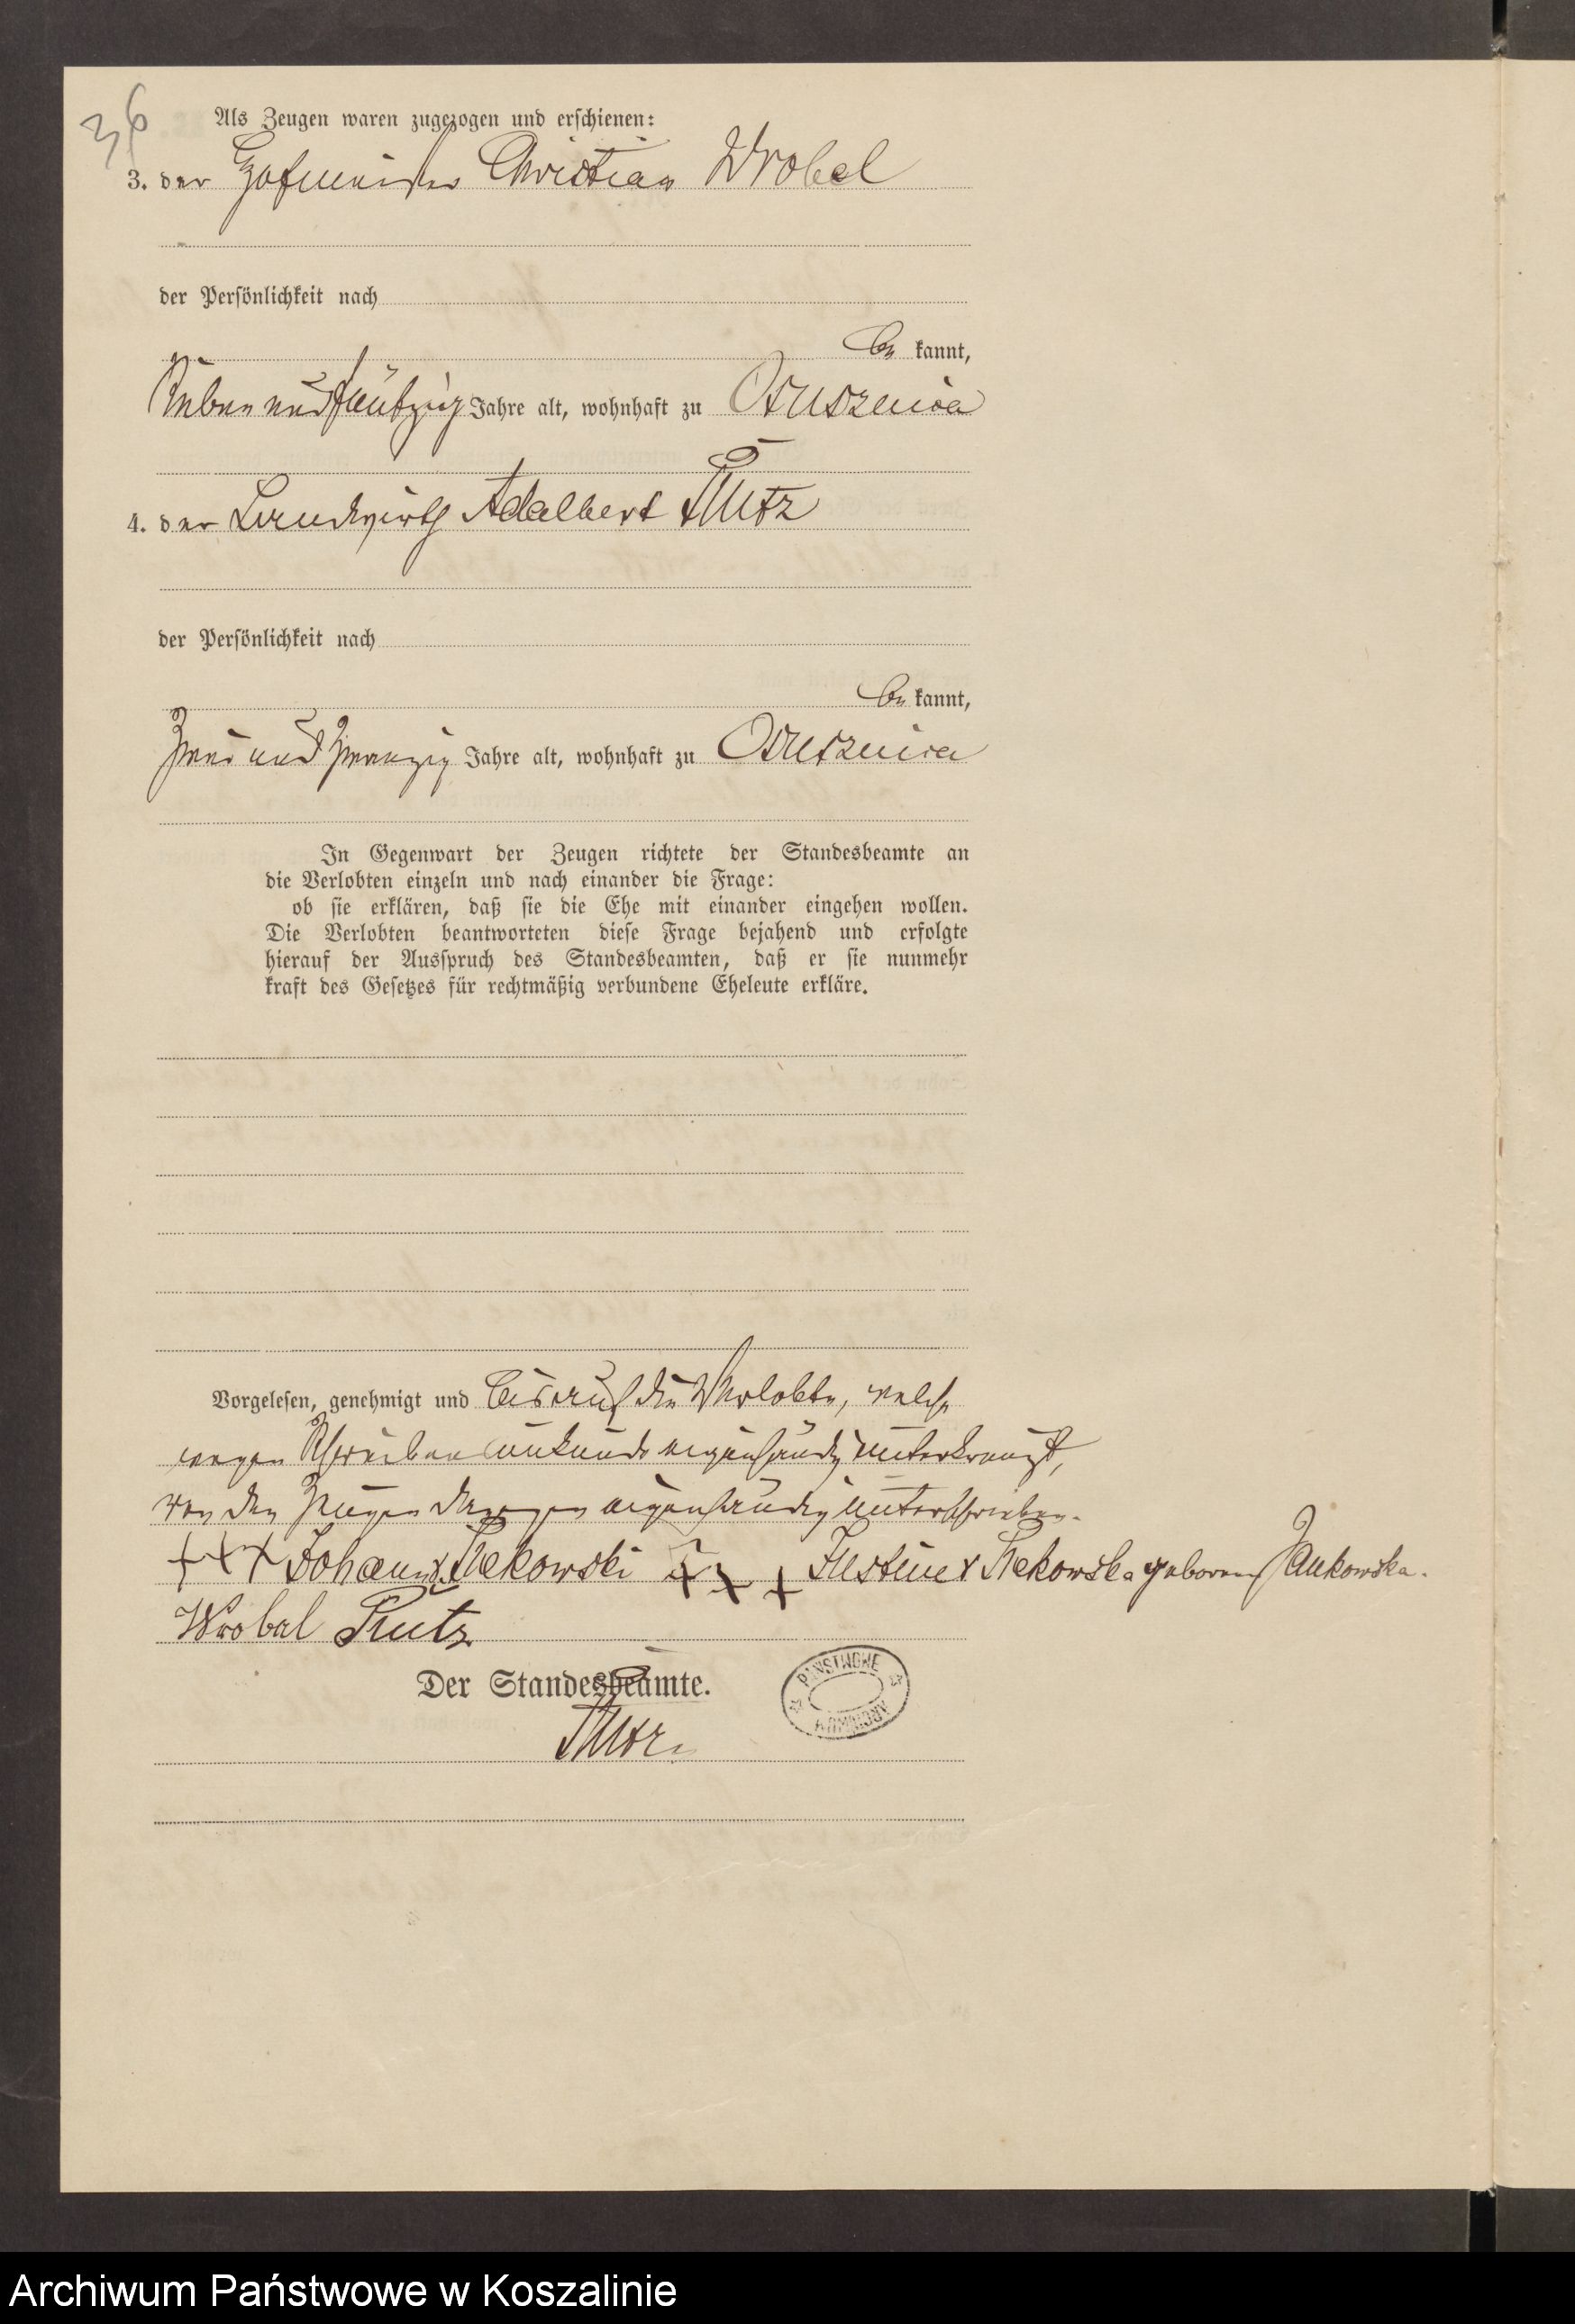 36
Als Zeugen waren zugezogen und erschienen:
3. der Hofmeister Christian Wrobel
der Persönlichkeit nach
be kannt,
sieben und fünfzig Jahre alt, wohnhaft zu Osusznica
4. der Landwirth Adalbert Prutz
der Persönlichkeit nach
be kannt,
zwei und zwanzig Jahre alt, wohnhaft zu Osusznica
In Gegenwart der Zeugen richtete der Standesbeamte an
die Verlobten einzeln und nach einander die Frage:
ob sie erklären, daß sie die Ehe mit einander eingehen wollen.
Die Verlobten beantworteten diese Frage bejahend und erfolgte
hierauf der Ausspruch des Standesbeamten, daß er sie nunmehr
kraft des Gesetzes für rechtmäßig verbundene Eheleute erkläre.
Vorgelesen, genehmigt und die Verlobte, welche
wegen Schreibensunkunde eigenhändig unterkreuzt,
von den Zeugen dagegen eigenhändig unterschrieben.
+++ Johann +++ Justine geborene Jankowska.
Wrobel Prutz
Der Standesbeamte.
Prutz.
PAŃSTWOWE ARCHIWUM
Archiwum Państwowe w Koszalinie